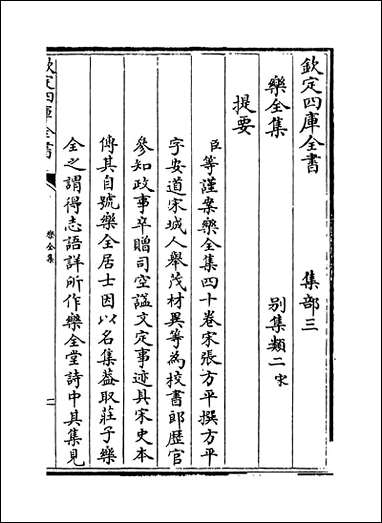 欽定四庫全書
集部三
樂全集
別集類二宋
提要
臣等謹案樂全集四十卷宋張方平撰方平
字安道宋城人舉茂材異等為校書郎歴官
參知政事卒贈司空諡文定事迹具宋史本
傳其自號樂全居士因以名集葢取莊子樂
全之謂得志語詳所作樂全堂詩中其集見
欽定四庫全書
樂全集
一